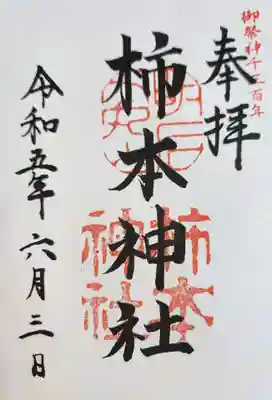 御祭神千三百年
奉拝
柿本神社
令和五年六月三日